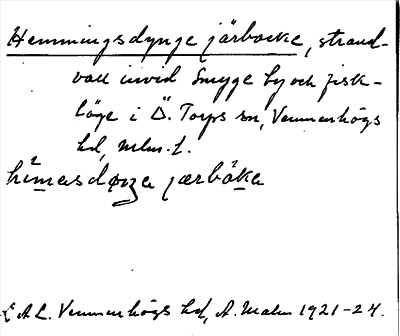 Hemmingsdynge järbacke, strand-
vall invid Smyge by och fisk-
läge i Ö. Torps sn, Vemmenhögs
hd, Mlm. l.
järbäka
L A L. Vemmenhögs hd, A. Malm 1921-24.